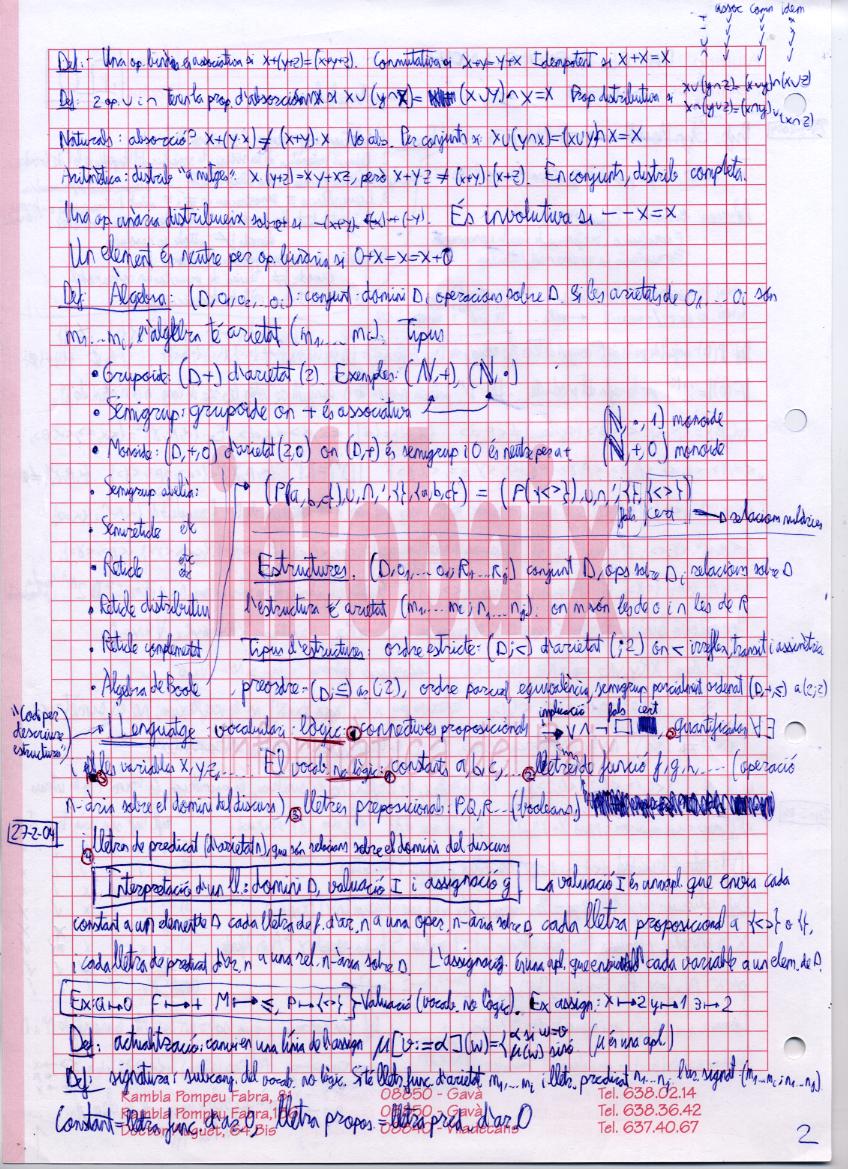 assoc comm idem
Def: Una op. binària és associativa si x+(y+z)=(x+y)+z. Conmutativa si x+y=y+x Idempotent si x+x=x
Def: 2 op. ∪ i ∩ tenen la prop. d'absorció si x∪(y∩x)= (x∪y)∩x=x Prop distributiva si x∪(y∩z)=(x∪y)∩(x∪z)
x∩(y∪z)=(x∩y)∪(x∩z)
Naturals: absorció? x+(y·x)≠(x+y)·x No abs. Per conjunts si: x∪(y∩x)=(x∪y)∩x=x
Aritmètica: distrib "a mitges". x·(y+z)=xy+xz, però x+y·z≠(x+y)·(x+z). En conjunts, distrib completa.
Una op. unària distribueix sobre + si -(x+y)=(-x)+(-y). És involutiva si --x=x
Un element és neutre per op. binària si 0+x=x=x+0
Def: Àlgebra: (D,o₁,o₂,...oᵢ): conjunt-domini D i operacions sobre D. Si les arietats de o₁...oᵢ són
m₁...mᵢ, l'àlgebra té arietat (m₁,...mᵢ). Tipus
• Grupoide: (D,+) d'arietat (2). Exemples: (N,+), (N,·)
• Semigrup: grupoide on + és associativa
(N,·,1) monoide
• Monoide: (D,+,0) d'arietat (2,0) on (D,+) és semigrup i 0 és neutre per a +
(N,+,0) monoide
• Semigrup abelià:
(P(a,b,c),∪,∩,',{},{a,b,c}) = (P({<>}),∪,∩,',{},{<>})
fals cert
relacions nulàries
• Semireticle etc
• Reticle etc
Estructures. (D,o₁...oᵢ;R₁...Rⱼ) conjunt D, ops sobre D i relacions sobre D
• Reticle distributiu
l'estructura té arietat (m₁...mᵢ;n₁...nⱼ). on m són les de o i n les de R
• Reticle complementat
Tipus d'estructures: ordre estricte: (D;<) d'arietat (;2) on < irreflex, transit i assimètria
• Àlgebra de Boole
preordre: (D;≤) ar(;2), ordre parcial, equivalència, semigrup parcialment ordenat (D,+,≤) a(2;2)
"Codi per descriure estructures"
Llenguatge: vocabulari lògic: ① connectives proposicionals → ∨ ∧ ¬ □ ■, ② quantificadors ∀∃
implicació fals cert
i ③ les variables x,y,z,.... El vocab. no lògic: ① constants a,b,c,... ② lletres de funció f,g,h,... (operació
n-ària sobre el domini del discurs), ③ lletres preposicionals: P,Q,R... (booleans)
27-2-04
i ④ lletres de predicat (d'arietat n), que són relacions sobre el domini del discurs
Interpretació d'un ll.: domini D, valuació I i assignació g. La valuació I és una apl. que envia cada
constant a un element de D cada lletra de f. d'ar. n a una oper. n-ària sobre D, cada lletra proposicional a {<>} o {},
i cada lletra de predicat d'ar. n a una rel. n-ària sobre D. L'assignació g és una apl. que envia cada variable a un elem. de D.
Ex: a↦0 F↦+ M↦≤, P↦{<>} Valuació (vocab. no lògic). Ex assign: x↦2 y↦1 z↦2
Def: actualització: canvi en una línia de l'assign μ[v:=α](w)={α si w=v
μ(w) sinó (μ és una apl.)
Def: signatura: subconj. del vocab. no lògic. Si té lletr. func. d'arietat m₁...mᵢ i lletr. predicat n₁...nⱼ signat (m₁...mᵢ;n₁...nⱼ)
Constant = lletra func. d'ar 0, lletra propos = lletra pred. d'ar. 0
infobaix
Rambla Pompeu Fabra, 08850 - Gavà Tel. 638.02.14
Rambla Pompeu Fabra, 08850 - Gavà Tel. 638.36.42
08840 - Viladecans Tel. 637.40.67
2